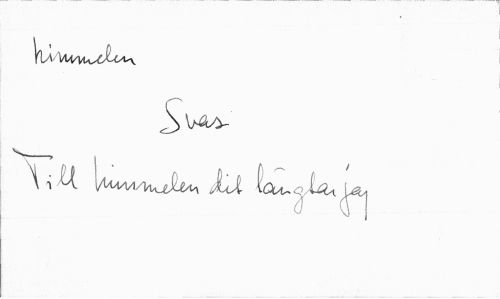 himmelen
Svar
Till himmelen dit längtar jag